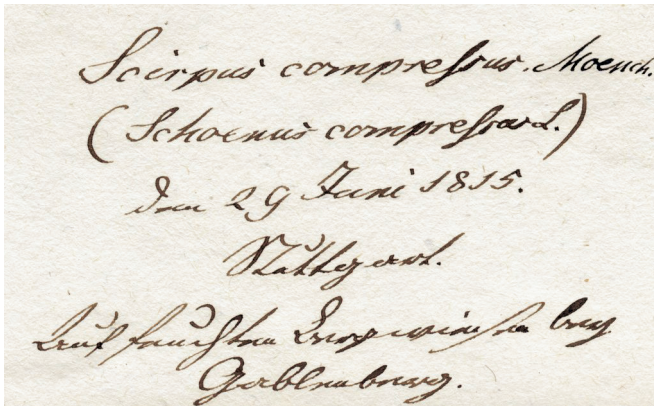 Scirpus compressus. Moench.
(Schoenus compressus L.)
den 29 Juni 1815.
Stuttgart.
Auf feuchten Bergwiesen bey
Gablenberg.